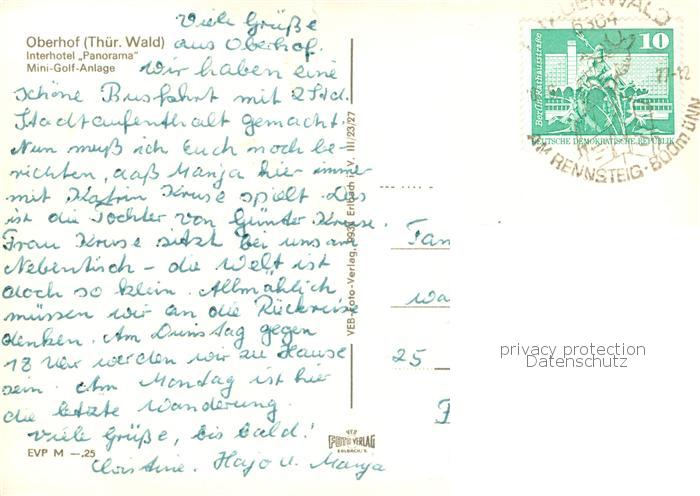 Viele Grüße
aus Oberhof.
Oberhof (Thür. Wald)
Interhotel „Panorama"
Mini-Golf-Anlage
Wir haben eine
schöne Busfahrt mit 2 Std.
Stadtaufenthalt gemacht.
Nun muß ich Euch noch be-
richten, daß Manja hier immer
mit Katrin Kruse spielt. Das
ist die Tochter von Günter Kruse.
Frau Kruse sitzt bei uns am
Nebentisch – die Welt ist
doch so klein. Allmählich
müssen wir an die Rückreise
denken. Am Dienstag gegen
18 Uhr werden wir zu Hause
sein. Am Montag ist hier
die letzte Wanderung.
Viele Grüße, bis bald!
Christine, Hajo u. Manja
EVP M —,25
VEB Foto-Verlag, Erlbach i. V. III/23/27
FOTO VERLAG
ERLBACH/V.
Berlin, Rathausstraße
10
DEUTSCHE DEMOKRATISCHE REPUBLIK
6304
AM RENNSTEIG · 800m ÜNN
Fam
25
privacy protection
Datenschutz